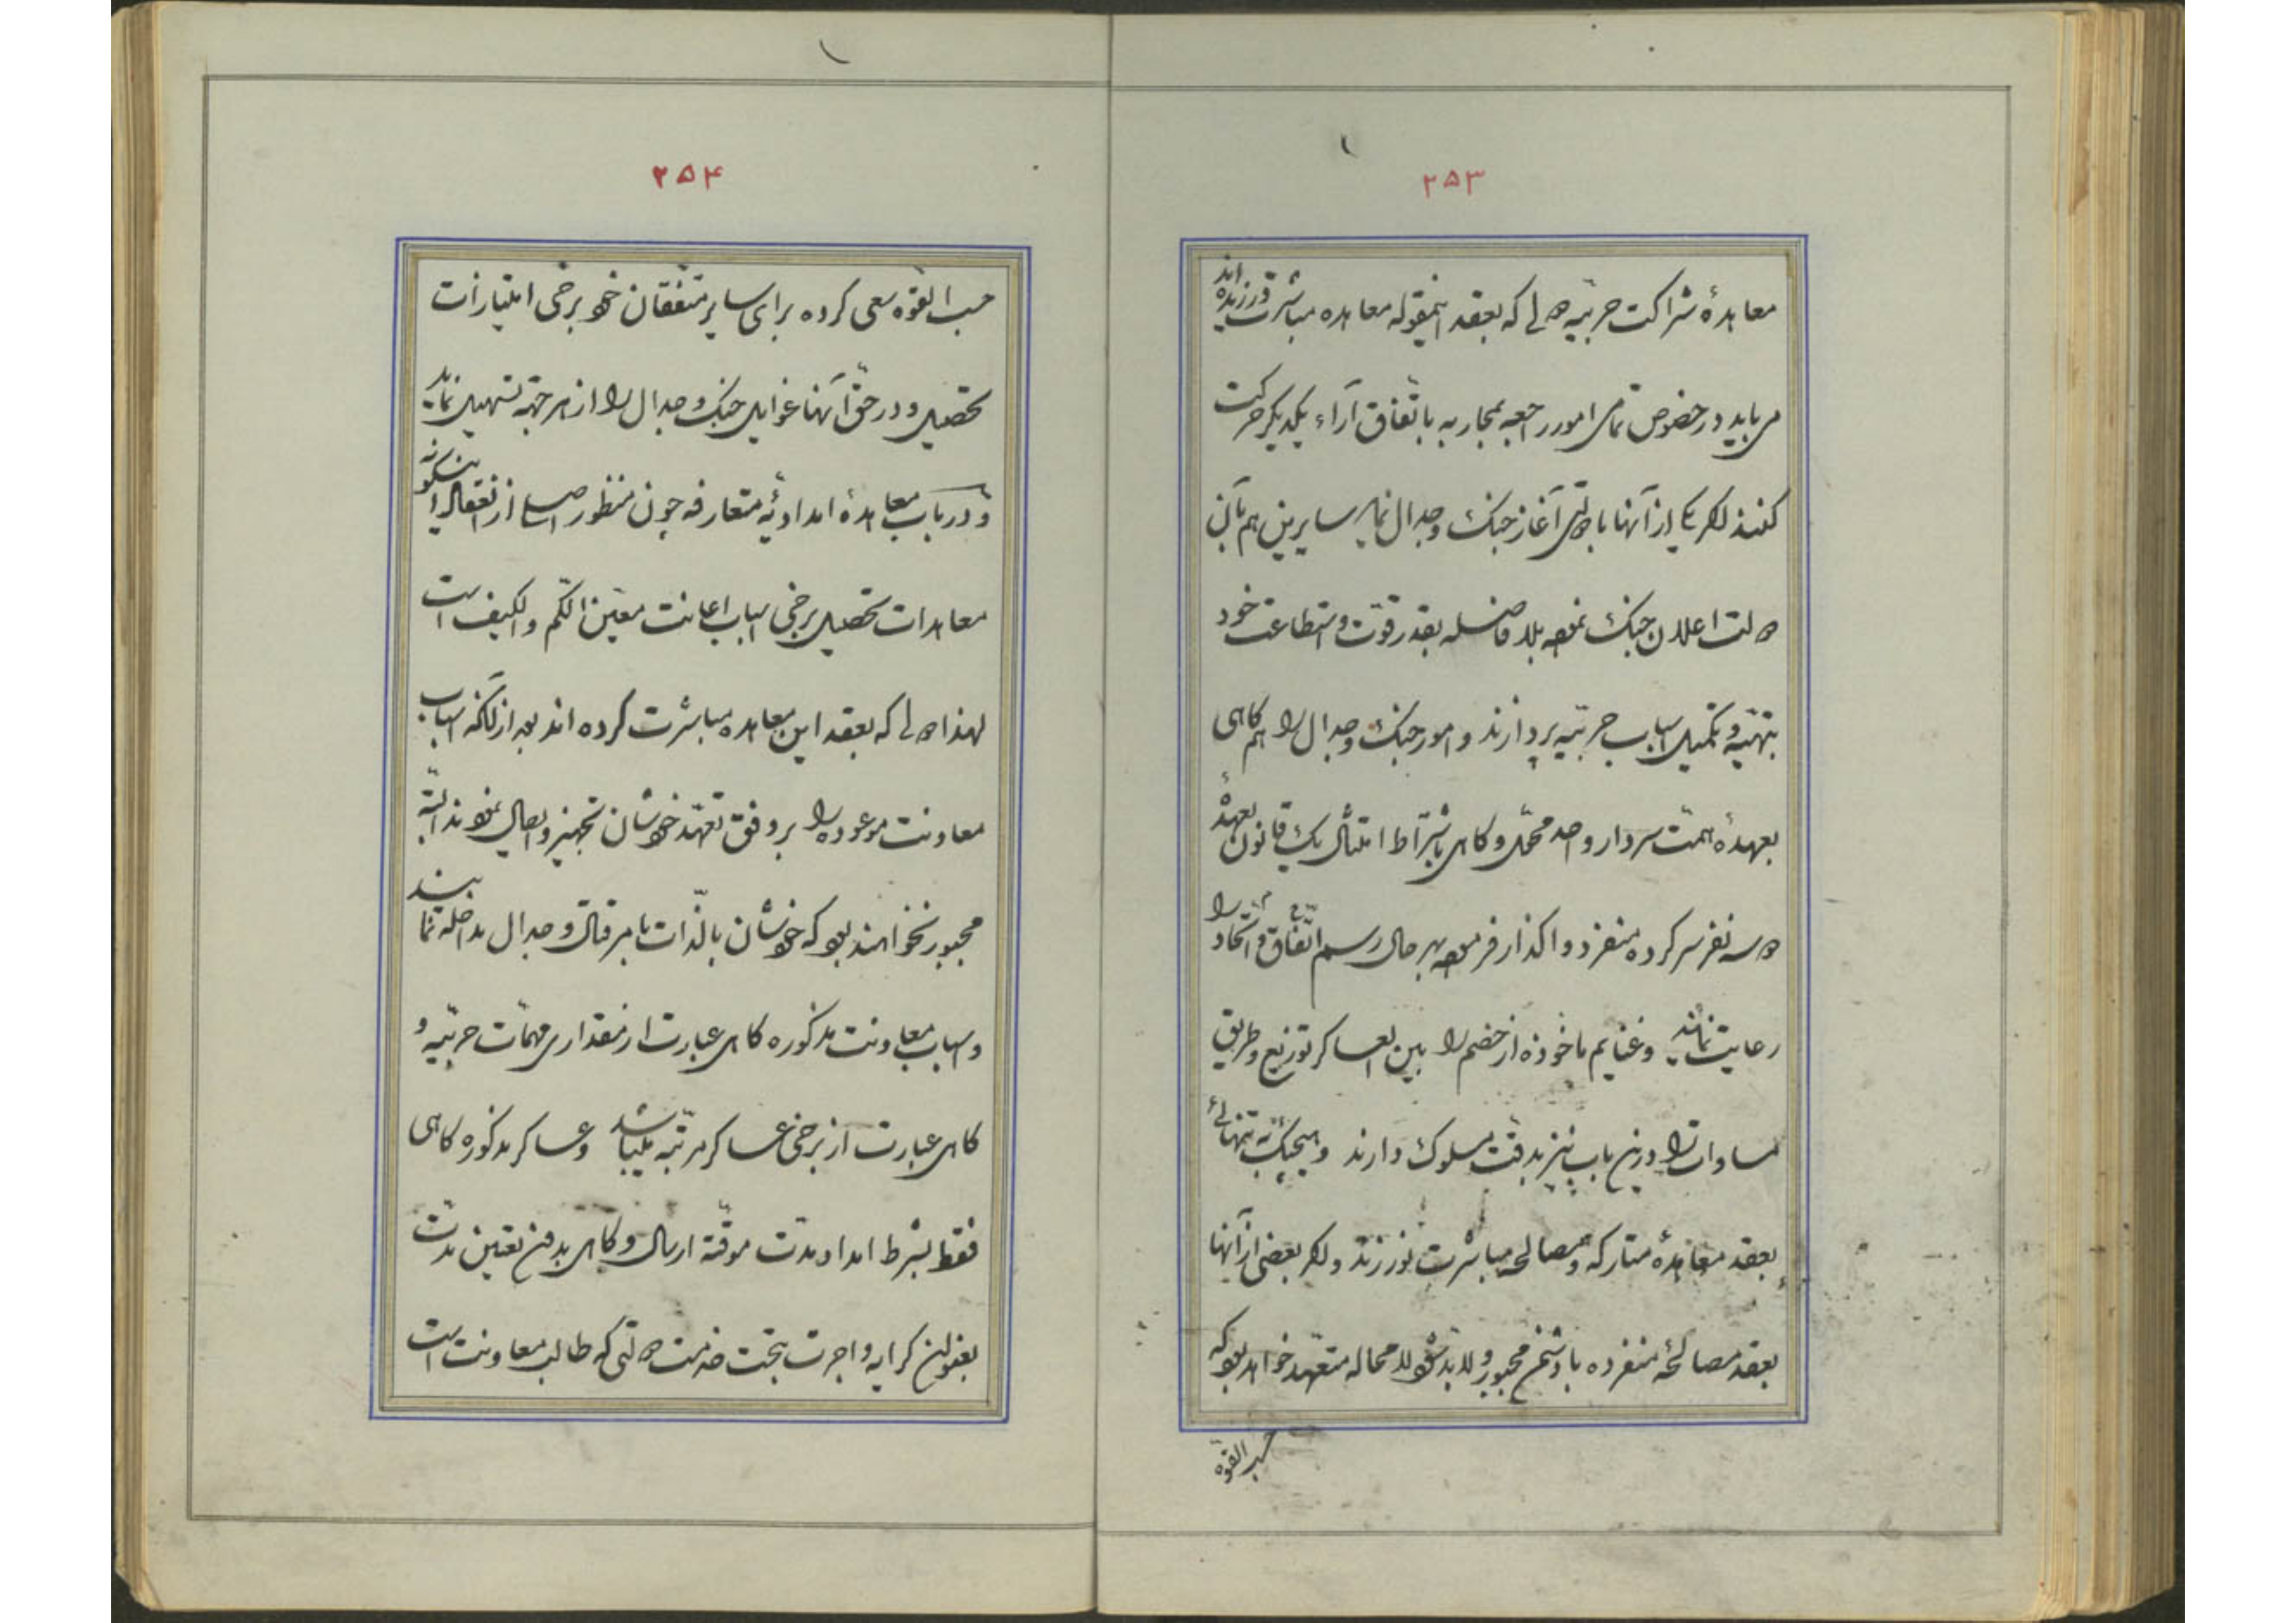 ۲۵۳
معاهدهٔ شراکت حربیّه دولی که بعقد اینمقوله معاهده مباشرت ورزیده‌اند
می‌باید در خصوص تمامی امور راجعه بمحاربه باتّفاق آراء یکدیگر حرکت
کنند اگر یکی از آنها با دولتی آغاز جنگ و جدال نماید سایرین هم بآن
دولت اعلان جنگ نموده بلا فاصله بقدر قوّت و استطاعت خود
بتهیّه و تکمیل اسباب حربیّه پردازند و امور جنگ و جدال را هم گاهی
بعهدهٔ همّت سردار واحد محوّل و گاهی باشتراط امتثال یک قانون بعهدهٔ
دو سه نفر سرکرده منفرد واگذار فرموده بهر حال رسم اتّفاق و اتّحاد را
رعایت نمایند و غنایم ماخوذه از خصم را بین العساکر توزیع و طریق
مساوات را درین باب نیز بدقّت مسلوک دارند و هیچیک به تنهائی
بعقد معاهدهٔ متارکه و مصالحه مباشرت نورزند و اگر بعضی از آنها
بعقد مصالحهٔ منفرده با دشمن مجبور و لابد شود لا محاله متعهّد خواهد بود که
حسب القوّه
۲۵۴
حسب القوّه سعی کرده برای سایر متّفقان خود برخی امتیازات
تحصیل و در حقّ آنها غوایل جنگ و جدال را از هر جهة تسهیل نماید
و در باب معاهدهٔ امدادیّهٔ متعارفه چون منظور اصلی از انعقاد اینگونه
معاهدات تحصیل برخی اسباب اعانت معیّن الکم و الکیف است
لهذا دولی که بعقد این معاهده مباشرت کرده‌اند بعد از آنکه اسباب
معاونت موعوده را بر وفق تعهّد خودشان تجهیز و ایصال نمودند البتّه
مجبور نخواهند بود که خودشان بالذّات بامر قتال و جدال مداخله نمایند
و اسباب معاونت مذکوره گاهی عبارت از مقداری مهمّات حربیّه و
گاهی عبارت از برخی عساکر مرتّبه میباشد و عساکر مذکوره گاهی
فقط بشرط امداد مدّت موقّتة ارسال و گاهی بدون تعیین مدّت
بعنوان کرایه و اجرت بتحت خدمت دولتی که طالب معاونت است